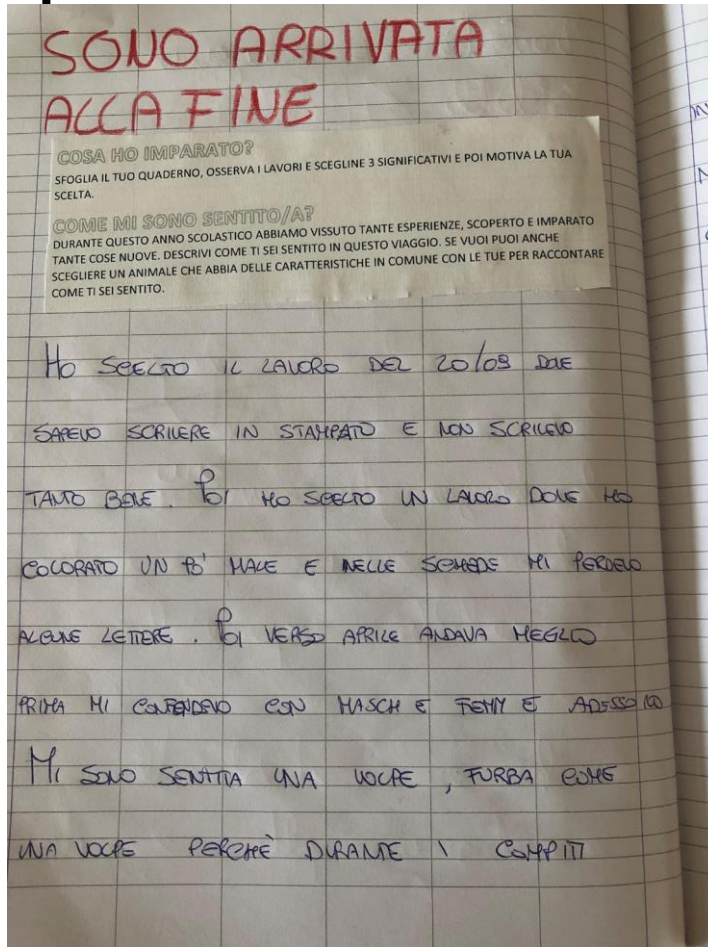 SONO ARRIVATA
ALLA FINE
COSA HO IMPARATO?
SFOGLIA IL TUO QUADERNO, OSSERVA I LAVORI E SCEGLINE 3 SIGNIFICATIVI E POI MOTIVA LA TUA
SCELTA.
COME MI SONO SENTITO/A?
DURANTE QUESTO ANNO SCOLASTICO ABBIAMO VISSUTO TANTE ESPERIENZE, SCOPERTO E IMPARATO
TANTE COSE NUOVE. DESCRIVI COME TI SEI SENTITO IN QUESTO VIAGGIO. SE VUOI PUOI ANCHE
SCEGLIERE UN ANIMALE CHE ABBIA DELLE CARATTERISTICHE IN COMUNE CON LE TUE PER RACCONTARE
COME TI SEI SENTITO.
HO SCELTO IL LAVORO DEL 20/09 DOVE
SAPEVO SCRIVERE IN STAMPATO E NON SCRIVEVO
TANTO BENE. POI HO SCELTO UN LAVORO DOVE HO
COLORATO UN PO' MALE E NELLE SCHEDE MI PERDEVO
ALCUNE LETTERE. POI VERSO APRILE ANDAVA MEGLIO
PRIMA MI CONFONDEVO CON MASCH E FEMM E ADESSO NO
MI SONO SENTITA UNA VOLPE, FURBA COME
UNA VOLPE PERCHÈ DURANTE I COMPITI